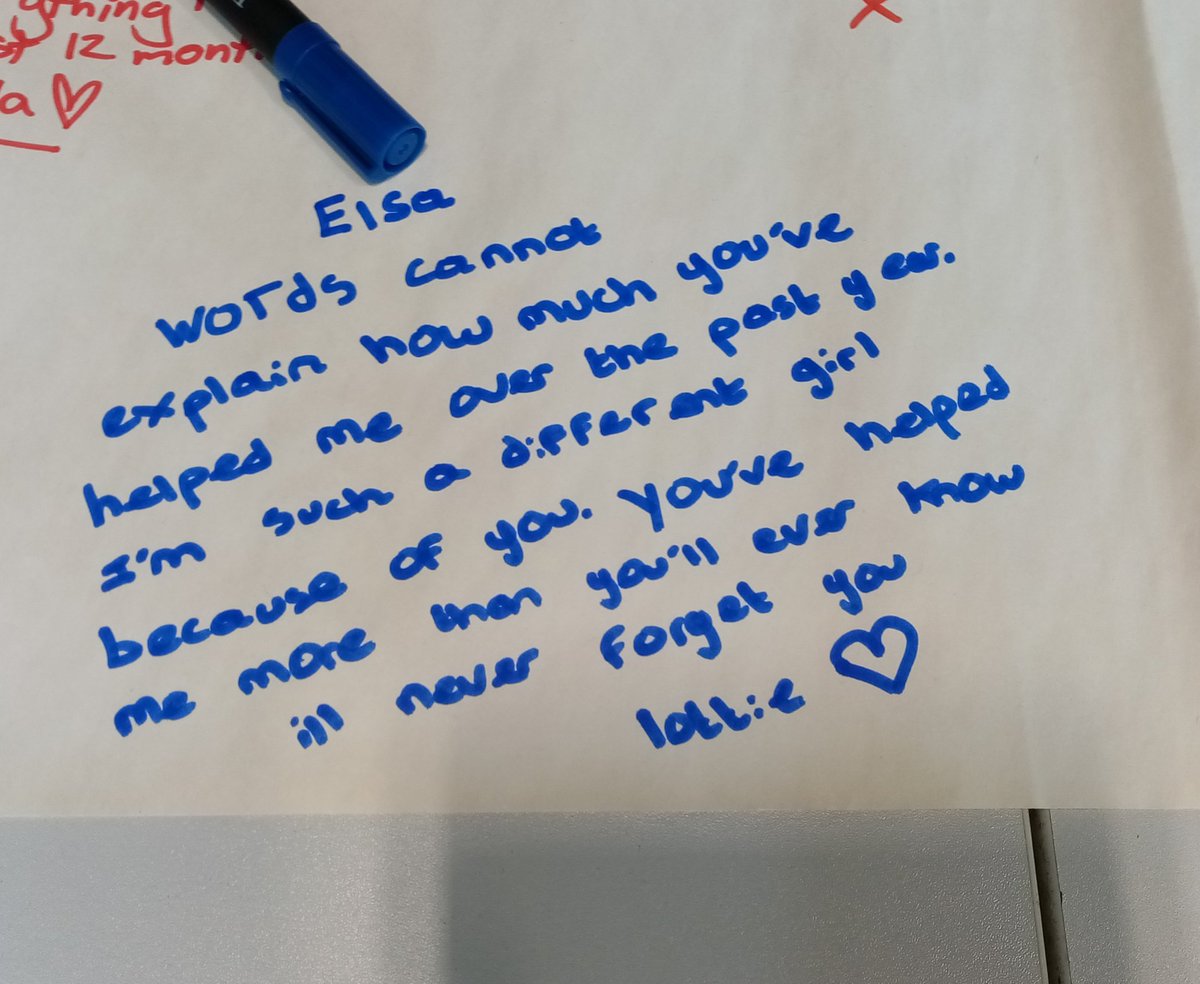 12 mont
Elsa
words cannot
explain how much you've
helped me over the past year.
I'm such a different girl
because of you. You've helped
me more than you'll ever know
ill never forget you
lottie